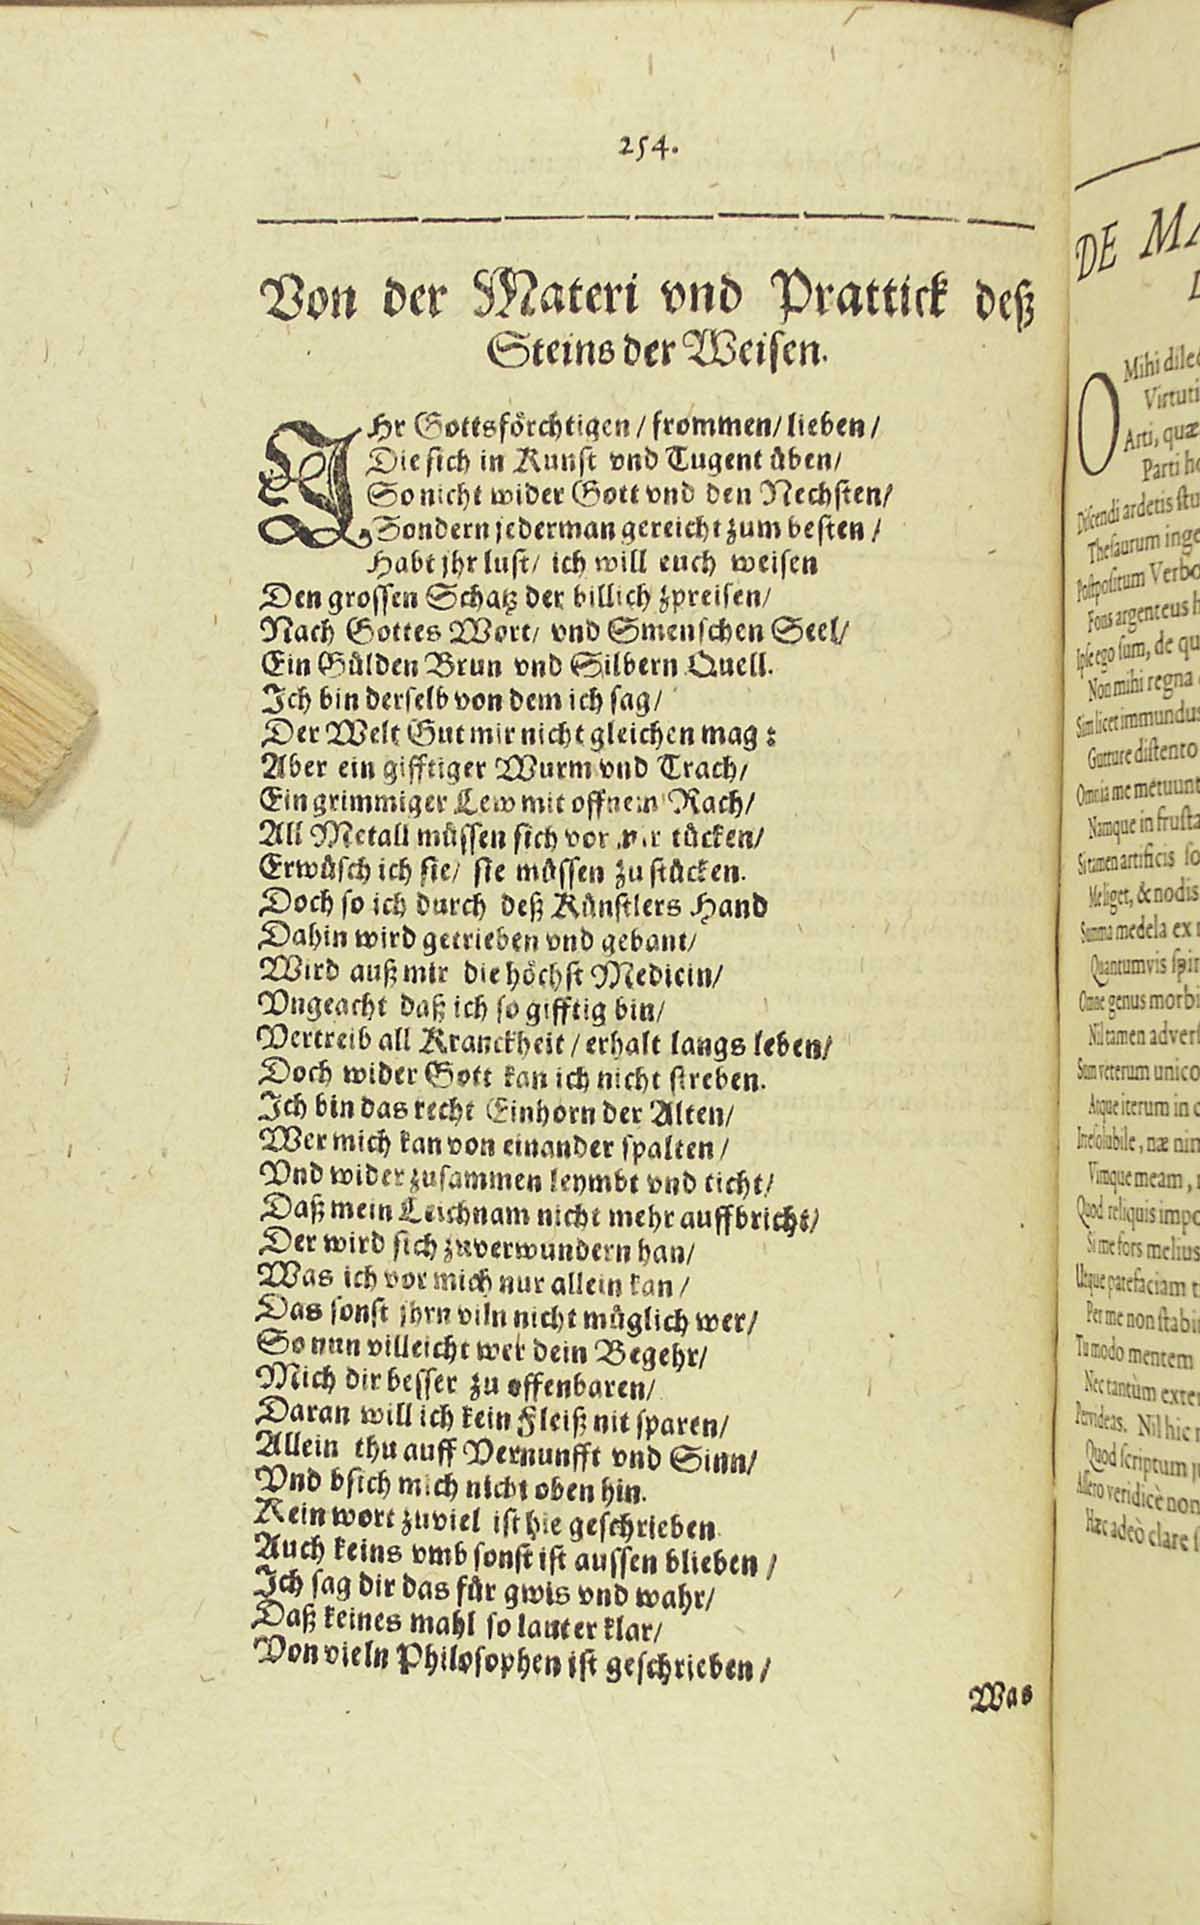 254.
Von der Materi vnd Prattick deß
Steins der Weisen.
IHr Gottsförchtigen / frommen / lieben /
Die sich in Kunst vnd Tugent üben /
So nicht wider Gott vnd den Nechsten /
Sondern jederman gereicht zum besten /
Habt jhr lust / ich will euch weisen
Den grossen Schatz der billich zpreisen /
Nach Gottes Wort / vnd Smenschen Seel /
Ein Gülden Brun vnd Silbern Quell.
Ich bin derselb von dem ich sag /
Der Welt Gut mir nicht gleichen mag :
Aber ein gifftiger Wurm vnd Trach /
Ein grimmiger Lew mit offnem Rach /
All Metall müssen sich vor mir tücken /
Erwüsch ich sie / sie müssen zu stücken.
Doch so ich durch deß Künstlers Hand
Dahin wird getrieben vnd gebant /
Wird auß mir die höchst Medicin /
Vngeacht daß ich so gifftig bin /
Vertreib all Kranckheit / erhalt langs leben /
Doch wider Gott kan ich nicht streben.
Ich bin das recht Einhorn der Alten /
Wer mich kan von einander spalten /
Vnd wider zusammen leymbt vnd ticht /
Daß mein Leichnam nicht mehr auffbricht /
Der wird sich zuverwundern han /
Was ich vor mich nur allein kan /
Das sonst jhrn viln nicht müglich wer /
So nun villeicht wer dein Begehr /
Mich dir besser zu offenbaren /
Daran will ich kein Fleiß nit sparen /
Allein thu auff Vernunfft vnd Sinn /
Vnd bsich mich nicht oben hin.
Kein wort zuviel ist hie geschrieben
Auch keins vmb sonst ist aussen blieben /
Ich sag dir das für gwis vnd wahr /
Daß keines mahl so lauter klar /
Von vieln Philosophen ist geschrieben /
Was
DE
O Mihi
Arti, quæ
Parti
Discendi ardetis
Thesaurum
Postpositum
Fons argenteus
Ipse ego sum, de
Non mihi regna
Sim licet immundus
Gutture distento
Omnia me metuunt
Namque in frusta
Si tamen artificis
Me liget, & nodis
Summa medela ex
Quantumvis
Omne genus morbi
Nil tamen
Sum veterum unico
Atque iterum in
Irresolubile, næ
Vimque meam,
Quod reliquis
Si me fors melius
Utque patefaciam
Per me non
Tu modo mentem
Nec tantùm
Pervideas. Nil hic
Quod scriptum
Assero veridicè non
Hæc adeò clare